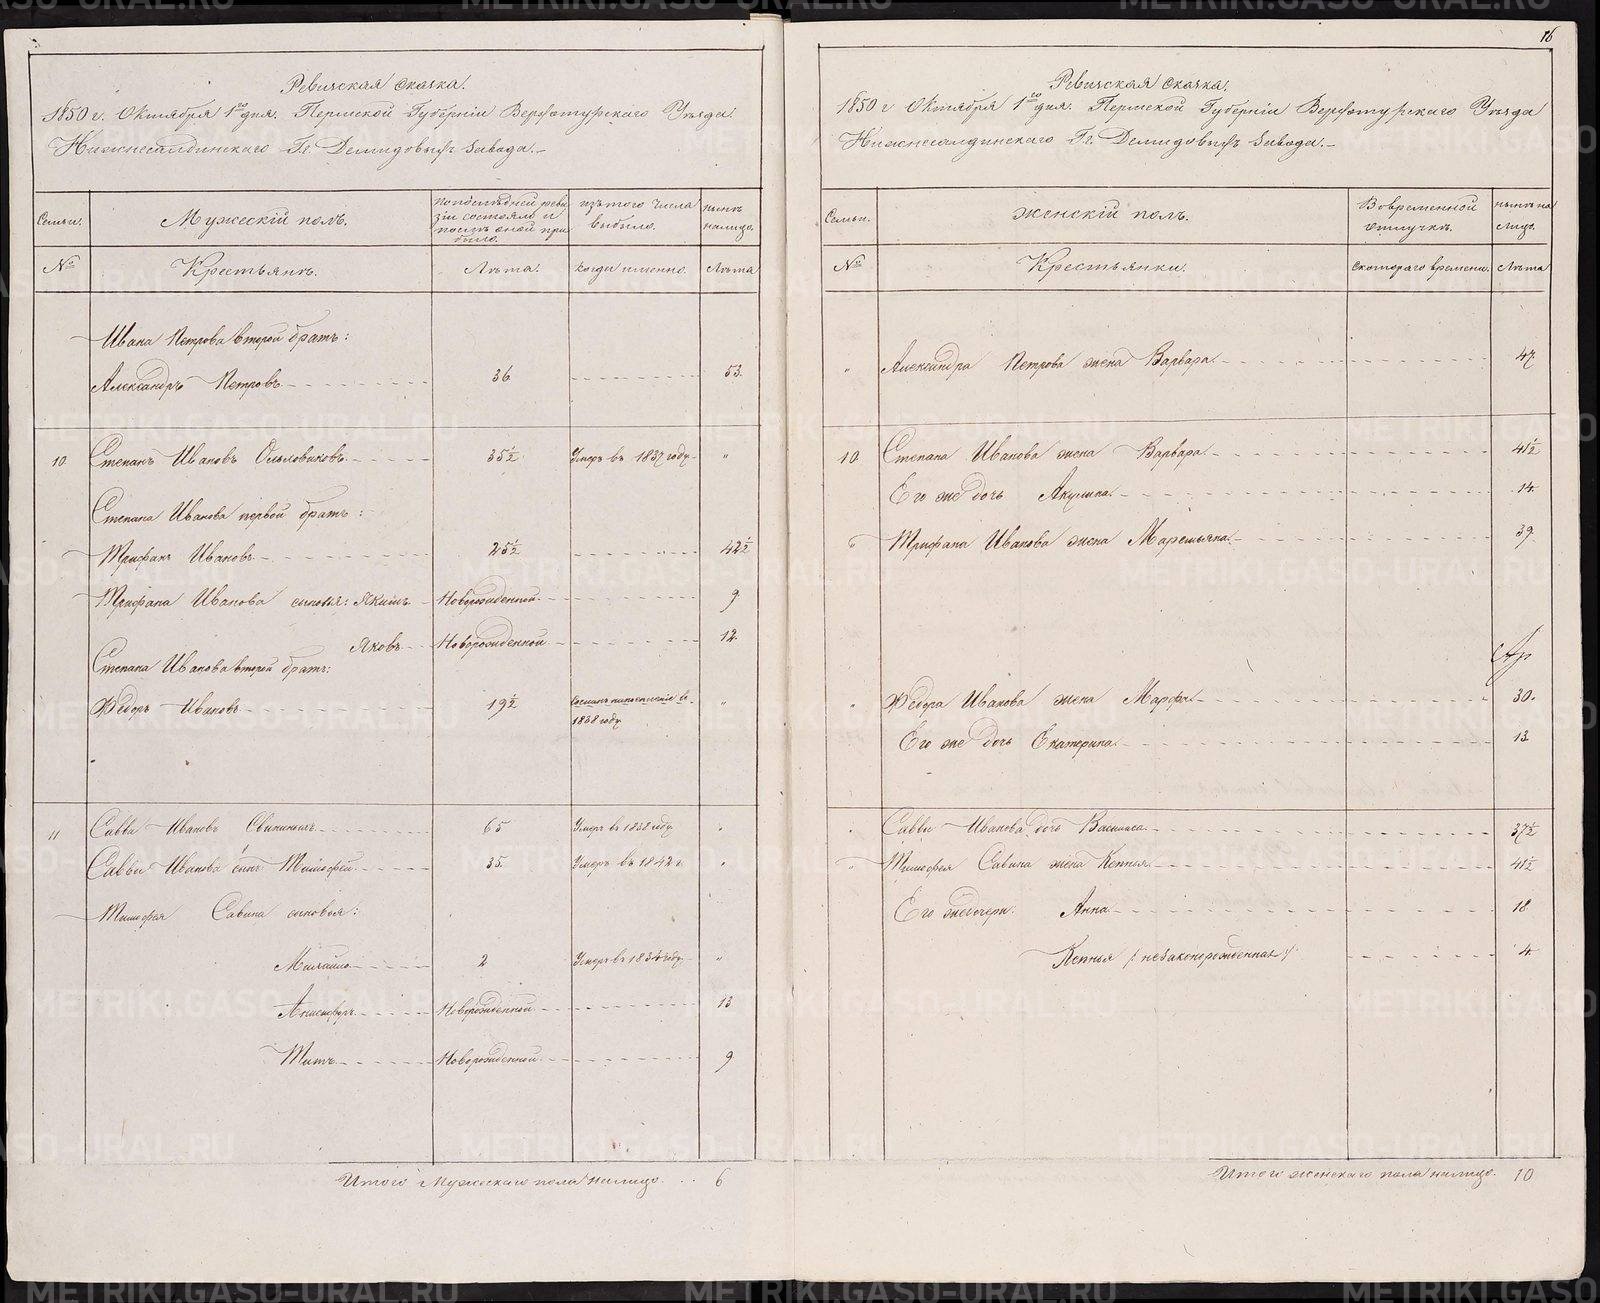 Ревизская сказка.
1850 г. Октября 1го дня. Пермской Губерніи Верхотурскаго Уѣзда
Нижнесалдинскаго Гг. Демидовыхъ завода.
Семьи.
Мужескій полъ.
По послѣдней реви
зіи состояло и
послѣ оной при
было.
изъ того числа
выбыло.
нынѣ
налицо.
№
Крестьянѣ.
Лѣта.
когда именно.
Лѣта
Ивана Петрова второй братъ:
Александръ Петровъ 36. 53.
10. Степанъ Ивановъ 35½ Умеръ въ 1837 году "
Степана Иванова первой братъ:
Трифанъ Ивановъ 25½ 42½
Трифана Иванова сыновья: Якимъ Новорожденной 9.
Яковъ Новорожденной 12.
Степана Иванова второй братъ:
Ѳедоръ Ивановъ 19½ въ "
1838 году
11 Савва Ивановъ Свининыхъ 65 Умеръ въ 1838 году "
Саввы Иванова сынъ Тимофей 35. Умеръ въ 1842 г. "
Тимофея Савина сыновья:
Михайло 2 Умеръ въ 1834 году "
Анисифоръ Новорожденной 13
Титъ Новорожденной 9
Итого Мужескаго пола налицо 6
16
Ревизская сказка.
1850 г. Октября 1го дня. Пермской Губерніи Верхотурскаго Уѣзда
Нижнесалдинскаго Гг. Демидовыхъ завода.
Семьи.
Женскій полъ.
Во временной
отлучкѣ.
нынѣ на
лицо.
№
Крестьянки.
Съ котораго времени.
Лѣта
" Александра Петрова жена Варвара 47.
10. Степана Иванова жена Варвара 41½
Его же дочь Акулина 14.
" Трифана Иванова жена Маремьяна 39.
" Ѳедора Иванова жена Марфа 30.
Его же дочь Екатерина 13.
" Саввы Иванова дочь Василиса 37½
" Тимофея Савина жена Ксенья 41½
Его же дочери: Анна 18.
Ксенья /незаконорожденная/ 4.
Итого женскаго пола налицо. 10
METRIKI.GASO-URAL.RU